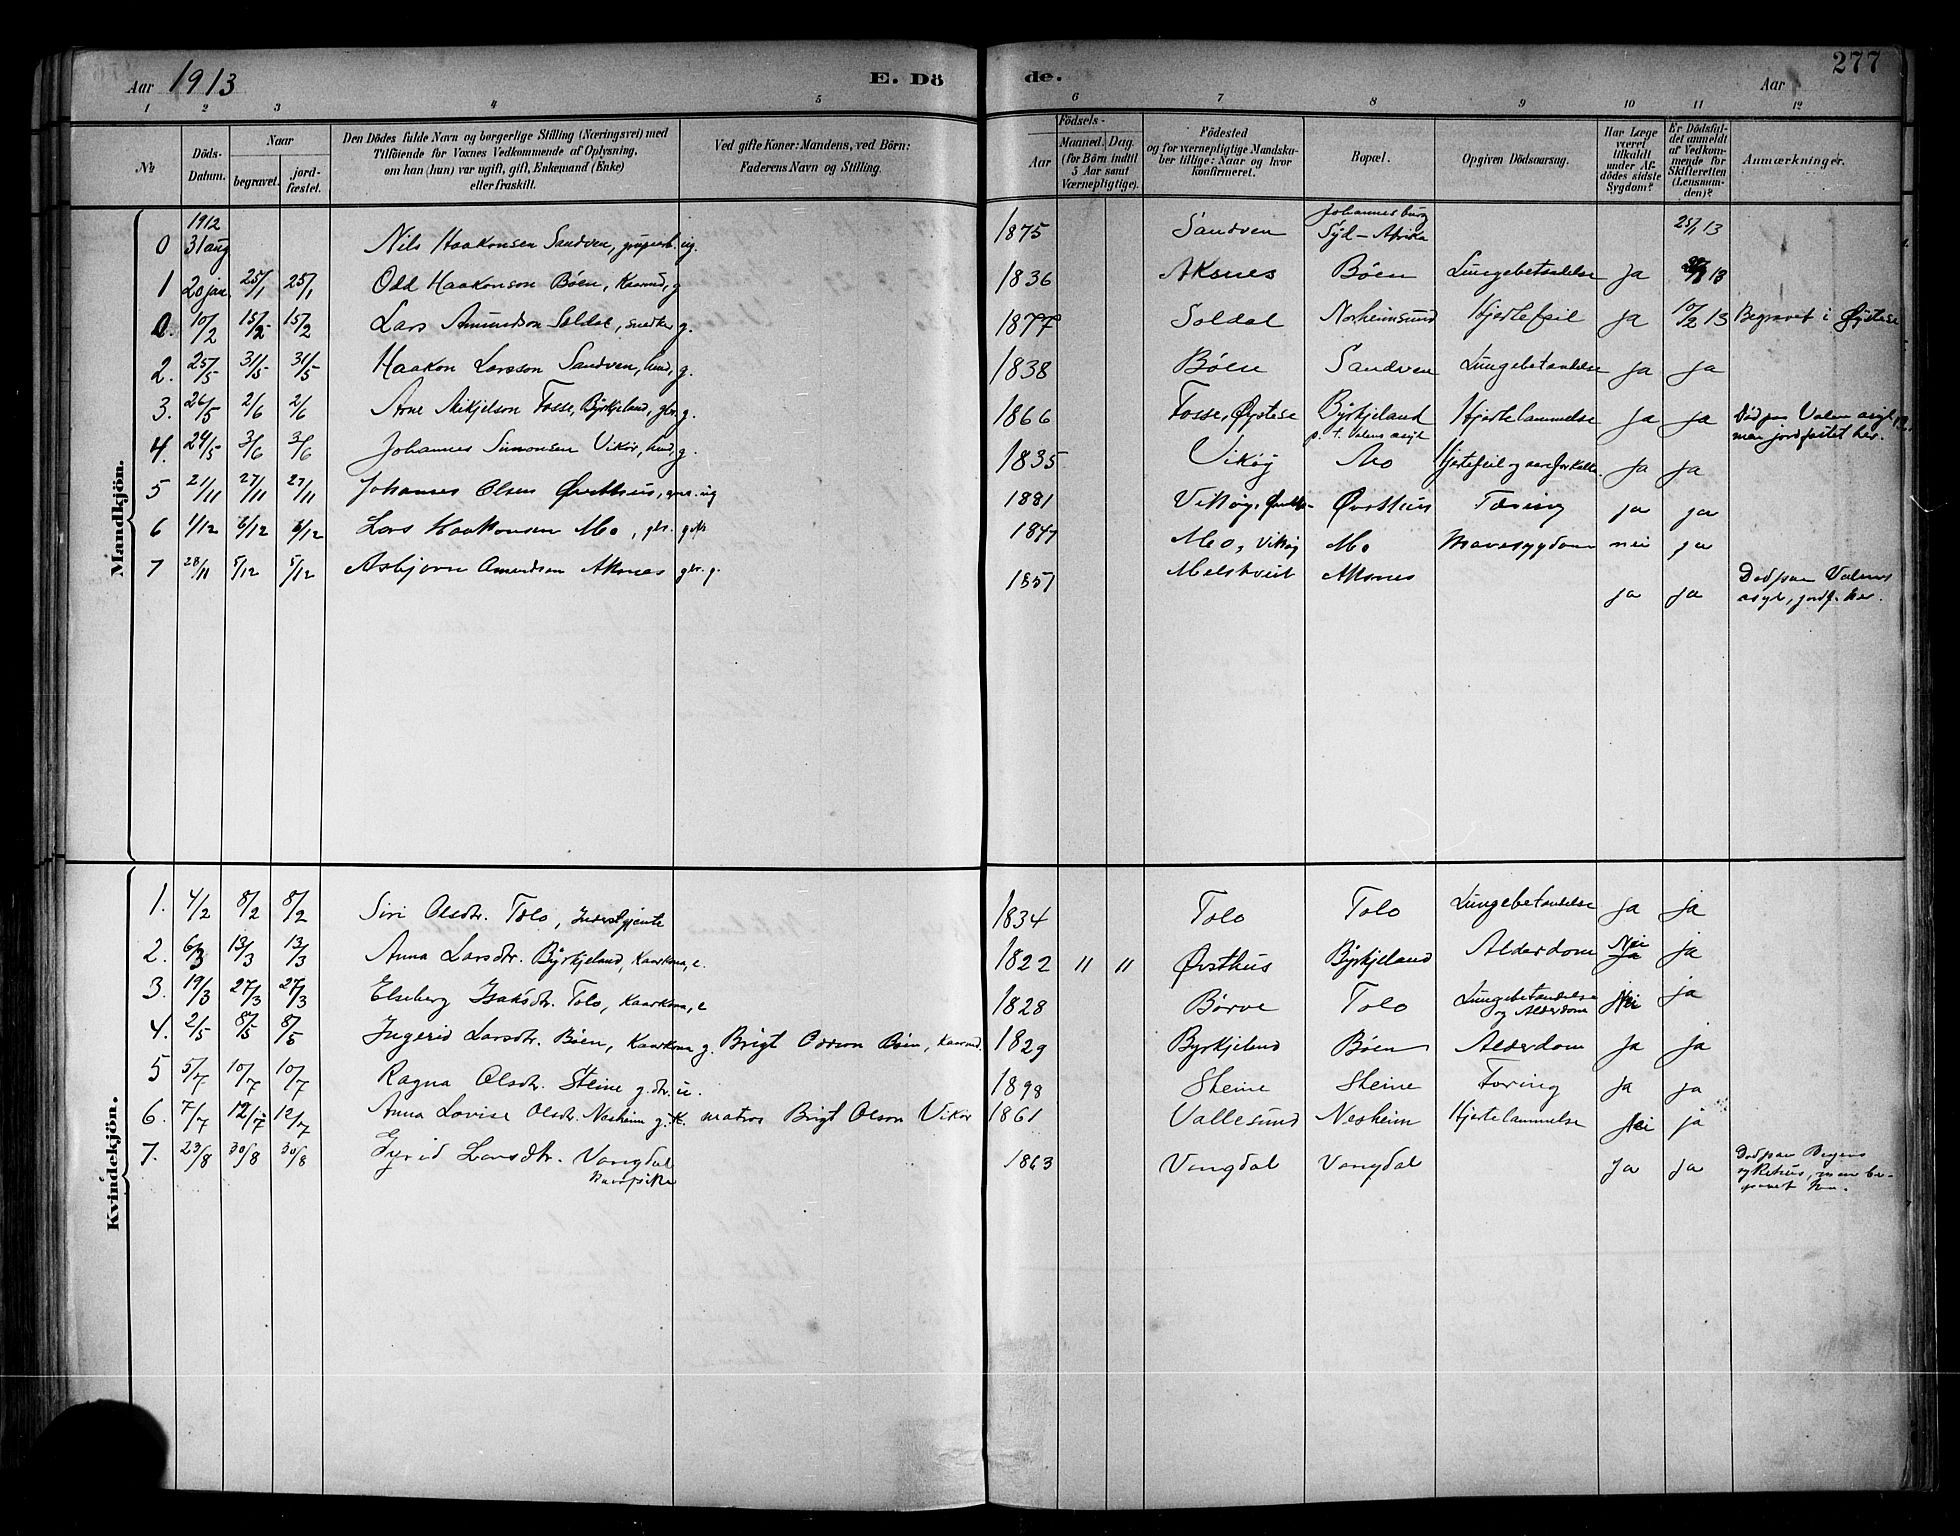 Aar 1913 E. Dö de. Aar 277
1 2 3 4 5 6 7 8 9 10 11 12
№
Döds-Datum.
Naar
begravet.
jord-fæstet.
Den Dödes fulde Navn og borgerlige Stilling (Næringsvei) med
Tilföiende for Voxnes Vedkommende af Oplysning,
om han (hun) var ugift, gift, Enkemand (Enke)
eller fraskilt.
Ved gifte Koner: Mandens, ved Börn:
Faderens Navn og Stilling.
Födsels-
Aar
Maaned. Dag.
(for Börn indtil
5 Aar samt
Værnepligtige).
Födested
og for værnepligtige Mandska-
ber tillige: Naar og hvor
konfirmeret.
Bopæl.
Opgiven Dödsaarsag.
Har Læge
været
tilkaldt
under Af-
dödes sidste
Sygdom?
Er Dödsfal-
det anmeldt
af Vedkom-
mende for
Skifteretten
(Lensman-
den)?
Anmærkninger.
Mandkjön.
1912
0 31 aug Nils Haakonsen Sandven, ug. 1875 Sandven Johannesburg Syd-Afrika 25/1 13
1 20 jan. 25/1 25/1 Odd Haakonson Bøen, Kaarmd, g 1836 Aksnes Bøen Lungebetændelse Ja 13
0. 10/2 15/2 15/2 Lars Amundson Soldal, snedker g. 1877 Soldal Norheimsund Hjertefeil Ja 10/2 13 Begravet i Øystese
2. 25/5 31/5 31/5 Haakon Larsson Sandven, g. 1838 Bøen Sandven Lungebetændelse Ja Ja
3. 26/5 2/6 2/6 Arne Mikjelson Fosse, Byrkjeland, gbr. g. 1866 Fosse, Øystese Byrkjeland p. t. Valens asyl Hjertelammelse Ja Ja Död paa Valen asyl, men jordfæstet her.
4. 24/5 3/6 3/6 Johannes Simonsen Vikør, g. 1835 Vikøy Mo Hjertefeil og aareforkalkn. Ja Ja
5 21/11 27/11 27/11 Johannes Olsen Øvsthus, ug 1881 Vikøy, Øvsthus Tæring ja ja
6 1/12 6/12 6/12 Lars Haakonsen Mo, gbr. gift 1847 Mo, Vikøy Mo Mavesygdom nei ja
7 28/11 5/12 5/12 Asbjørn Amundsen Aksnes gbr. g. 1851 Melstveit Aksnes ja ja Död paa Valens asyl, jordf. her.
Kvindekjön.
1. 4/2 8/2 8/2 Siri Olsdtr. Tolo, Inderstjente 1834 Tolo Tolo Lungebetændelse Ja Ja
2. 6/3 13/3 13/3 Anna Larsdtr. Byrkjeland, Kaarkona, e. 1822 " " Øvsthus Byrkjeland Alderdom Nei Ja ja
3. 19/3 27/3 27/3 Elseberg Isaksdtr. Tolo, Kaarkona, e 1828 Børve Tolo Lungebetændelse og Alderdom Nei ja
4. 2/5 8/5 8/5 Ingerid Larsdtr. Bøen, Kaarkona g. Brigt Oddson Bøen, Kaarmd. 1829 Byrkjeland Bøen Alderdom Ja Ja
5 5/7 10/7 10/7 Ragna Olsdtr. Steine g.dtr. u. 1898 Steine Steine Tæring Ja Ja
6. 7/7 12/7 12/7 Anna Lovise Olsdtr. Nesheim g. K. matros Brigt Olson Vikør 1861 Vallesund Nesheim Hjertelammelse Nei ja
7. 23/8 30/8 30/8 Gyrid Larsdtr. Vangdal 1863 Vangdal Vangdal Ja Ja Död paa Bergens sykehus, men begravet her.